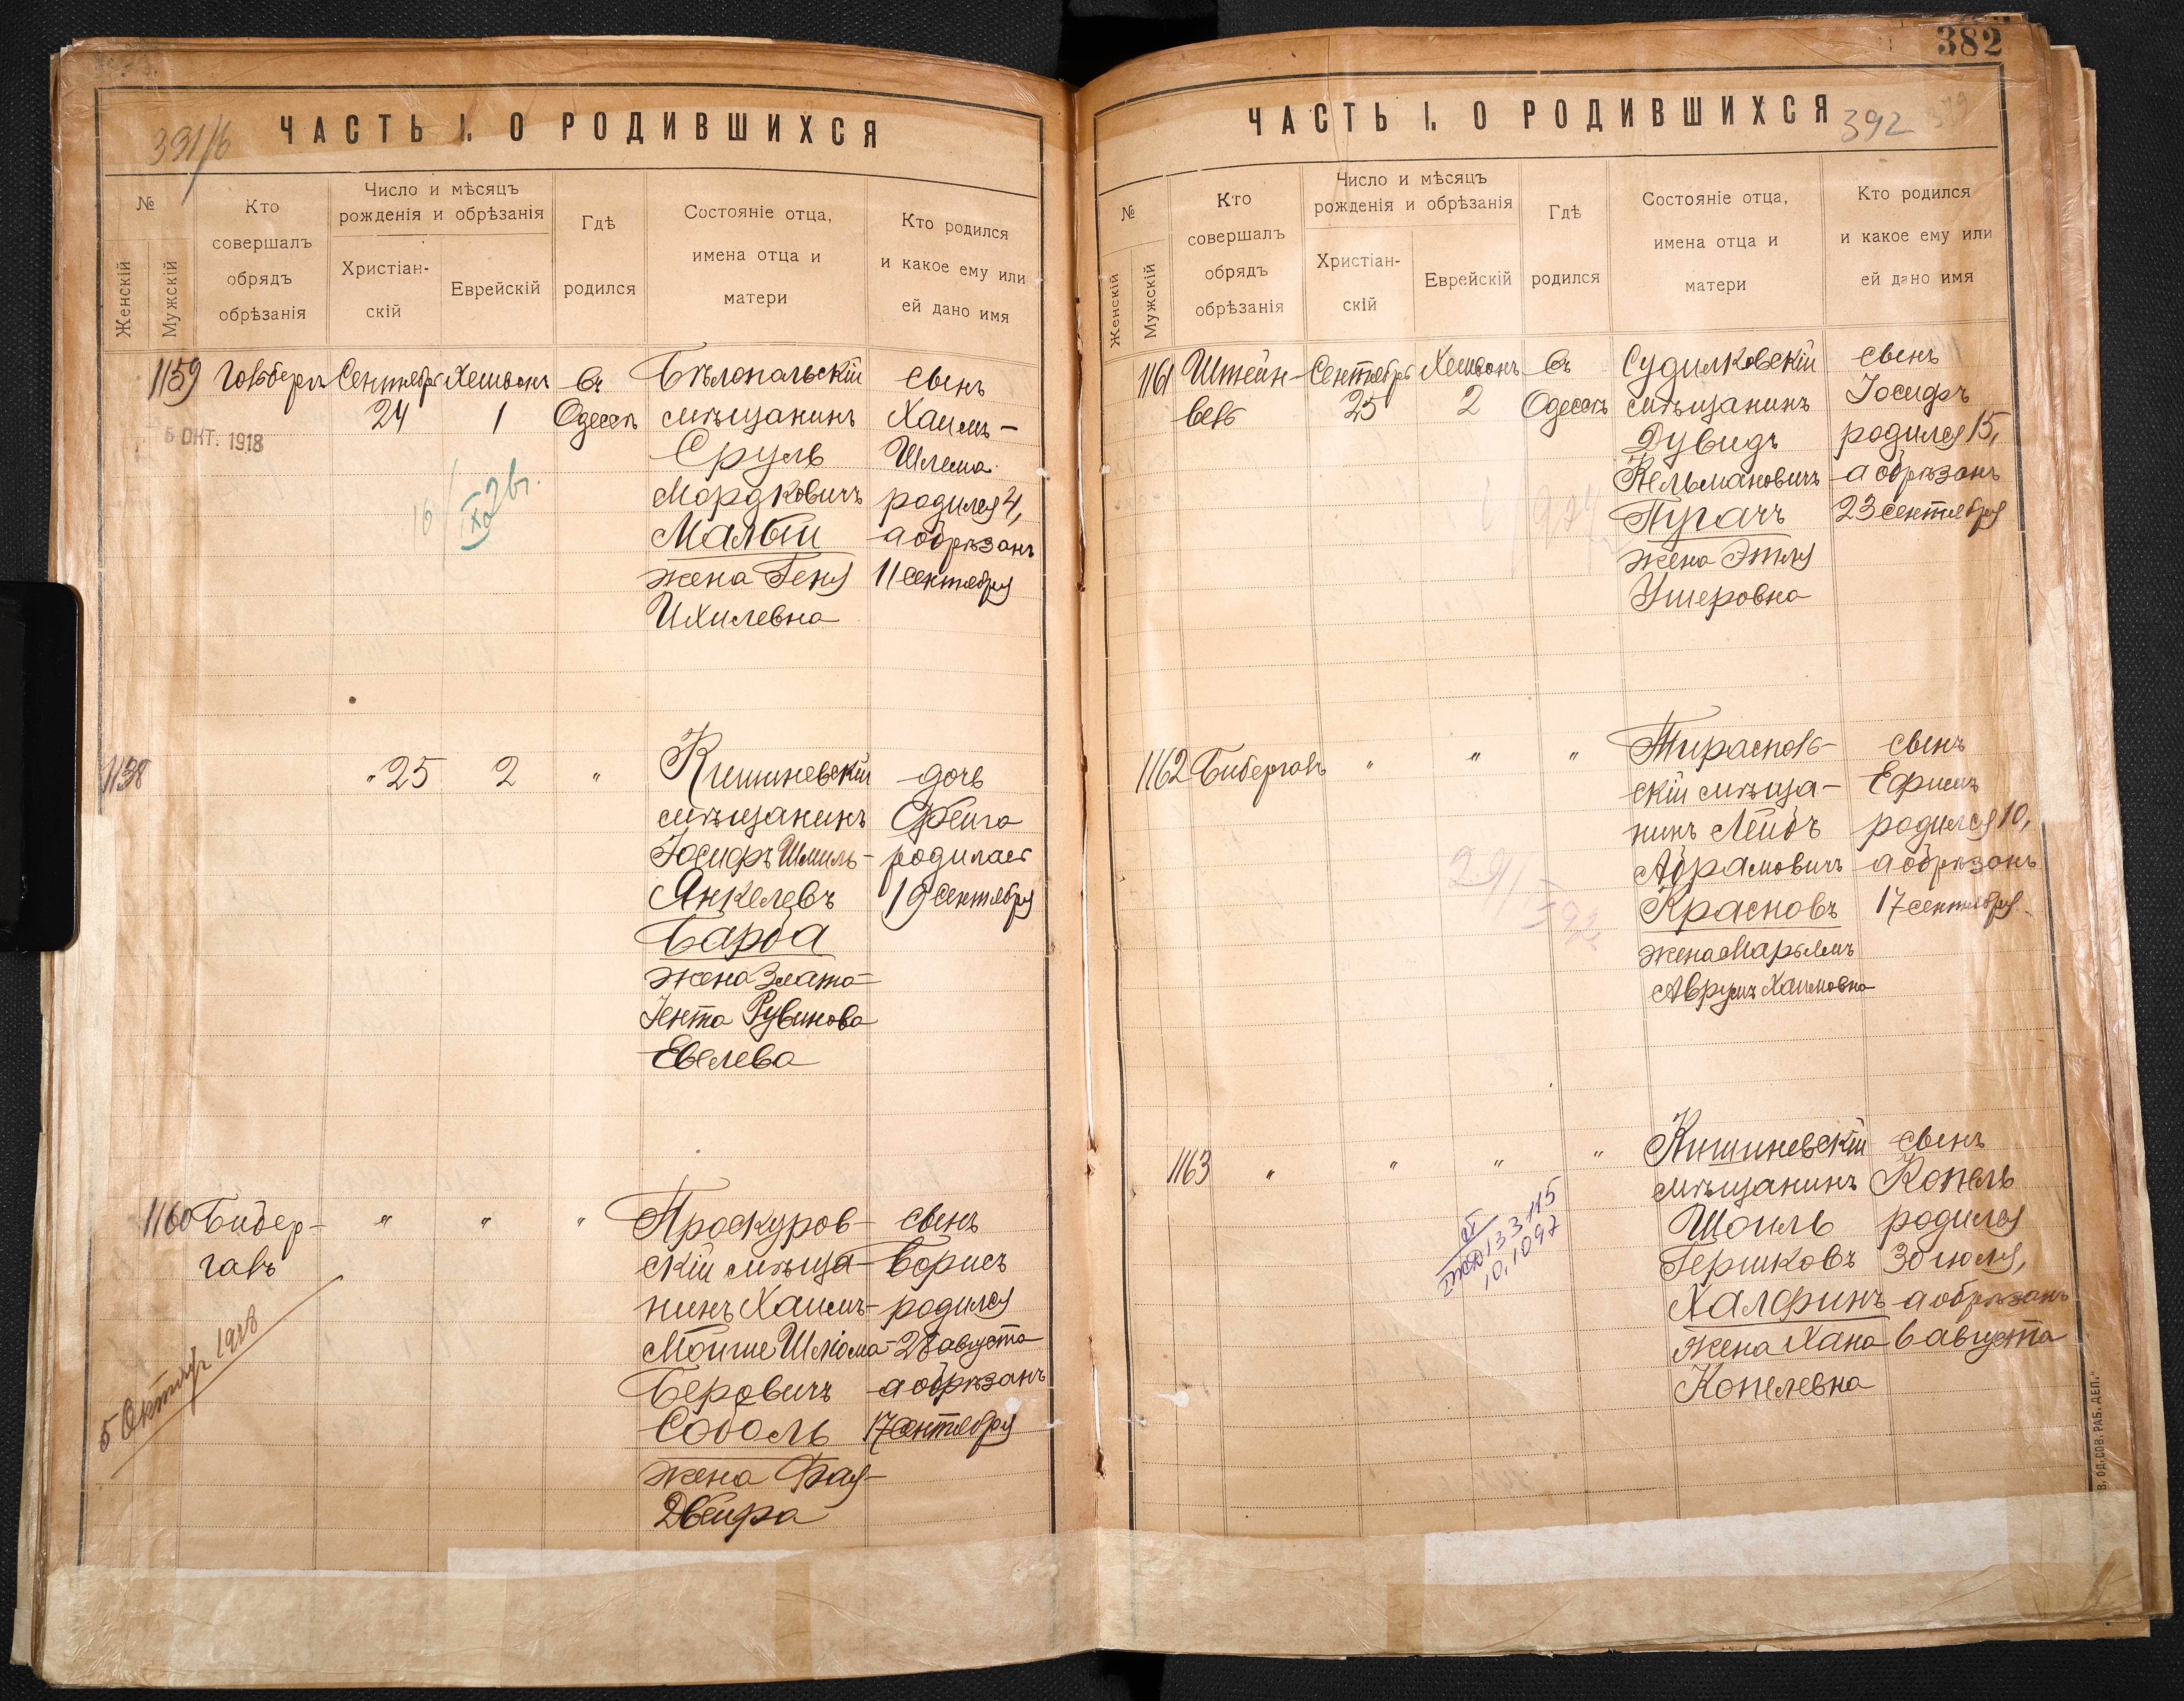 391/б
ЧАСТЬ I. О РОДИВШИХСЯ
№
Женскій
Мужскій
Кто
совершалъ
обрядъ
обрѣзанія
Число и мѣсяцъ
рожденія и обрѣзанія
Христіан-
скій
Еврейскій
Гдѣ
родился
Состояніе отца,
имена отца и
матери
Кто родился
и какое ему или
ей дано имя
1159
Сентября
24
Хешвонъ
1
Въ
Одессѣ
Бѣлопольскій
мѣщанинъ
Сруль
Мордковичъ
Малый
жена Геня
Ихилевна
сынъ
Хаимъ-
Шлема
родился 4,
а обрѣзанъ
11 сентября
5 ОКТ. 1918
1138
" 25
2
"
Кишиневскій
мѣщанинъ
Іосифъ Шмиль-
Янкелевъ
Барба
жена Злата-
Іента Рувинова
Евелева
дочь
Фейга
родилась
19 сентября
1160
Бибер-
галъ
"
"
"
Проскуров-
скій мѣща-
нинъ Хаимъ-
Мойше Шліома
Беровичъ
Соболь
жена Фая-
Двейра
сынъ
Борисъ
родился
28 августа
а обрѣзанъ
17 сентября
5 Октября 1918
382
ЧАСТЬ I. О РОДИВШИХСЯ
392
№
Женскій
Мужскій
Кто
совершалъ
обрядъ
обрѣзанія
Число и мѣсяцъ
рожденія и обрѣзанія
Христіан-
скій
Еврейскій
Гдѣ
родился
Состояніе отца,
имена отца и
матери
Кто родился
и какое ему или
ей дано имя
1161
Штейн-
Сентября
25
Хешвонъ
2
Въ
Одессѣ
Судилковскій
мѣщанинъ
Дувидъ
Кельмановичъ
Пугачъ
жена Этля
Ушеровна
сынъ
Іосифъ
родился 15,
а обрѣзанъ
23 сентября
1162
Бибергалъ
"
"
"
Тирасполь-
скій мѣща-
нинъ Лейбъ
Абрамовичъ
Красновъ
жена Марьямъ
Аврумъ Хаимовна
сынъ
Ефимъ
родился 10,
а обрѣзанъ
17 сентября
1163
"
"
"
"
Кишиневскій
мѣщанинъ
Шоиль
Гершковъ
Халфинъ
жена Хана
Копелевна
сынъ
Копель
родился
30 іюля,
а обрѣзанъ
6 августа